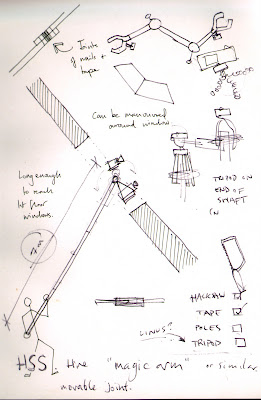 Joints
of nails +
tape
Can be manouvred
around window.
Long enough
to reach
1st floor
windows.
TRIPOD ON
END OF
SHAFT
HACKSAW
TAPE
POLES
TRIPOD
LINUS?
HSS Hire "magic arm" or similar
movable joint.